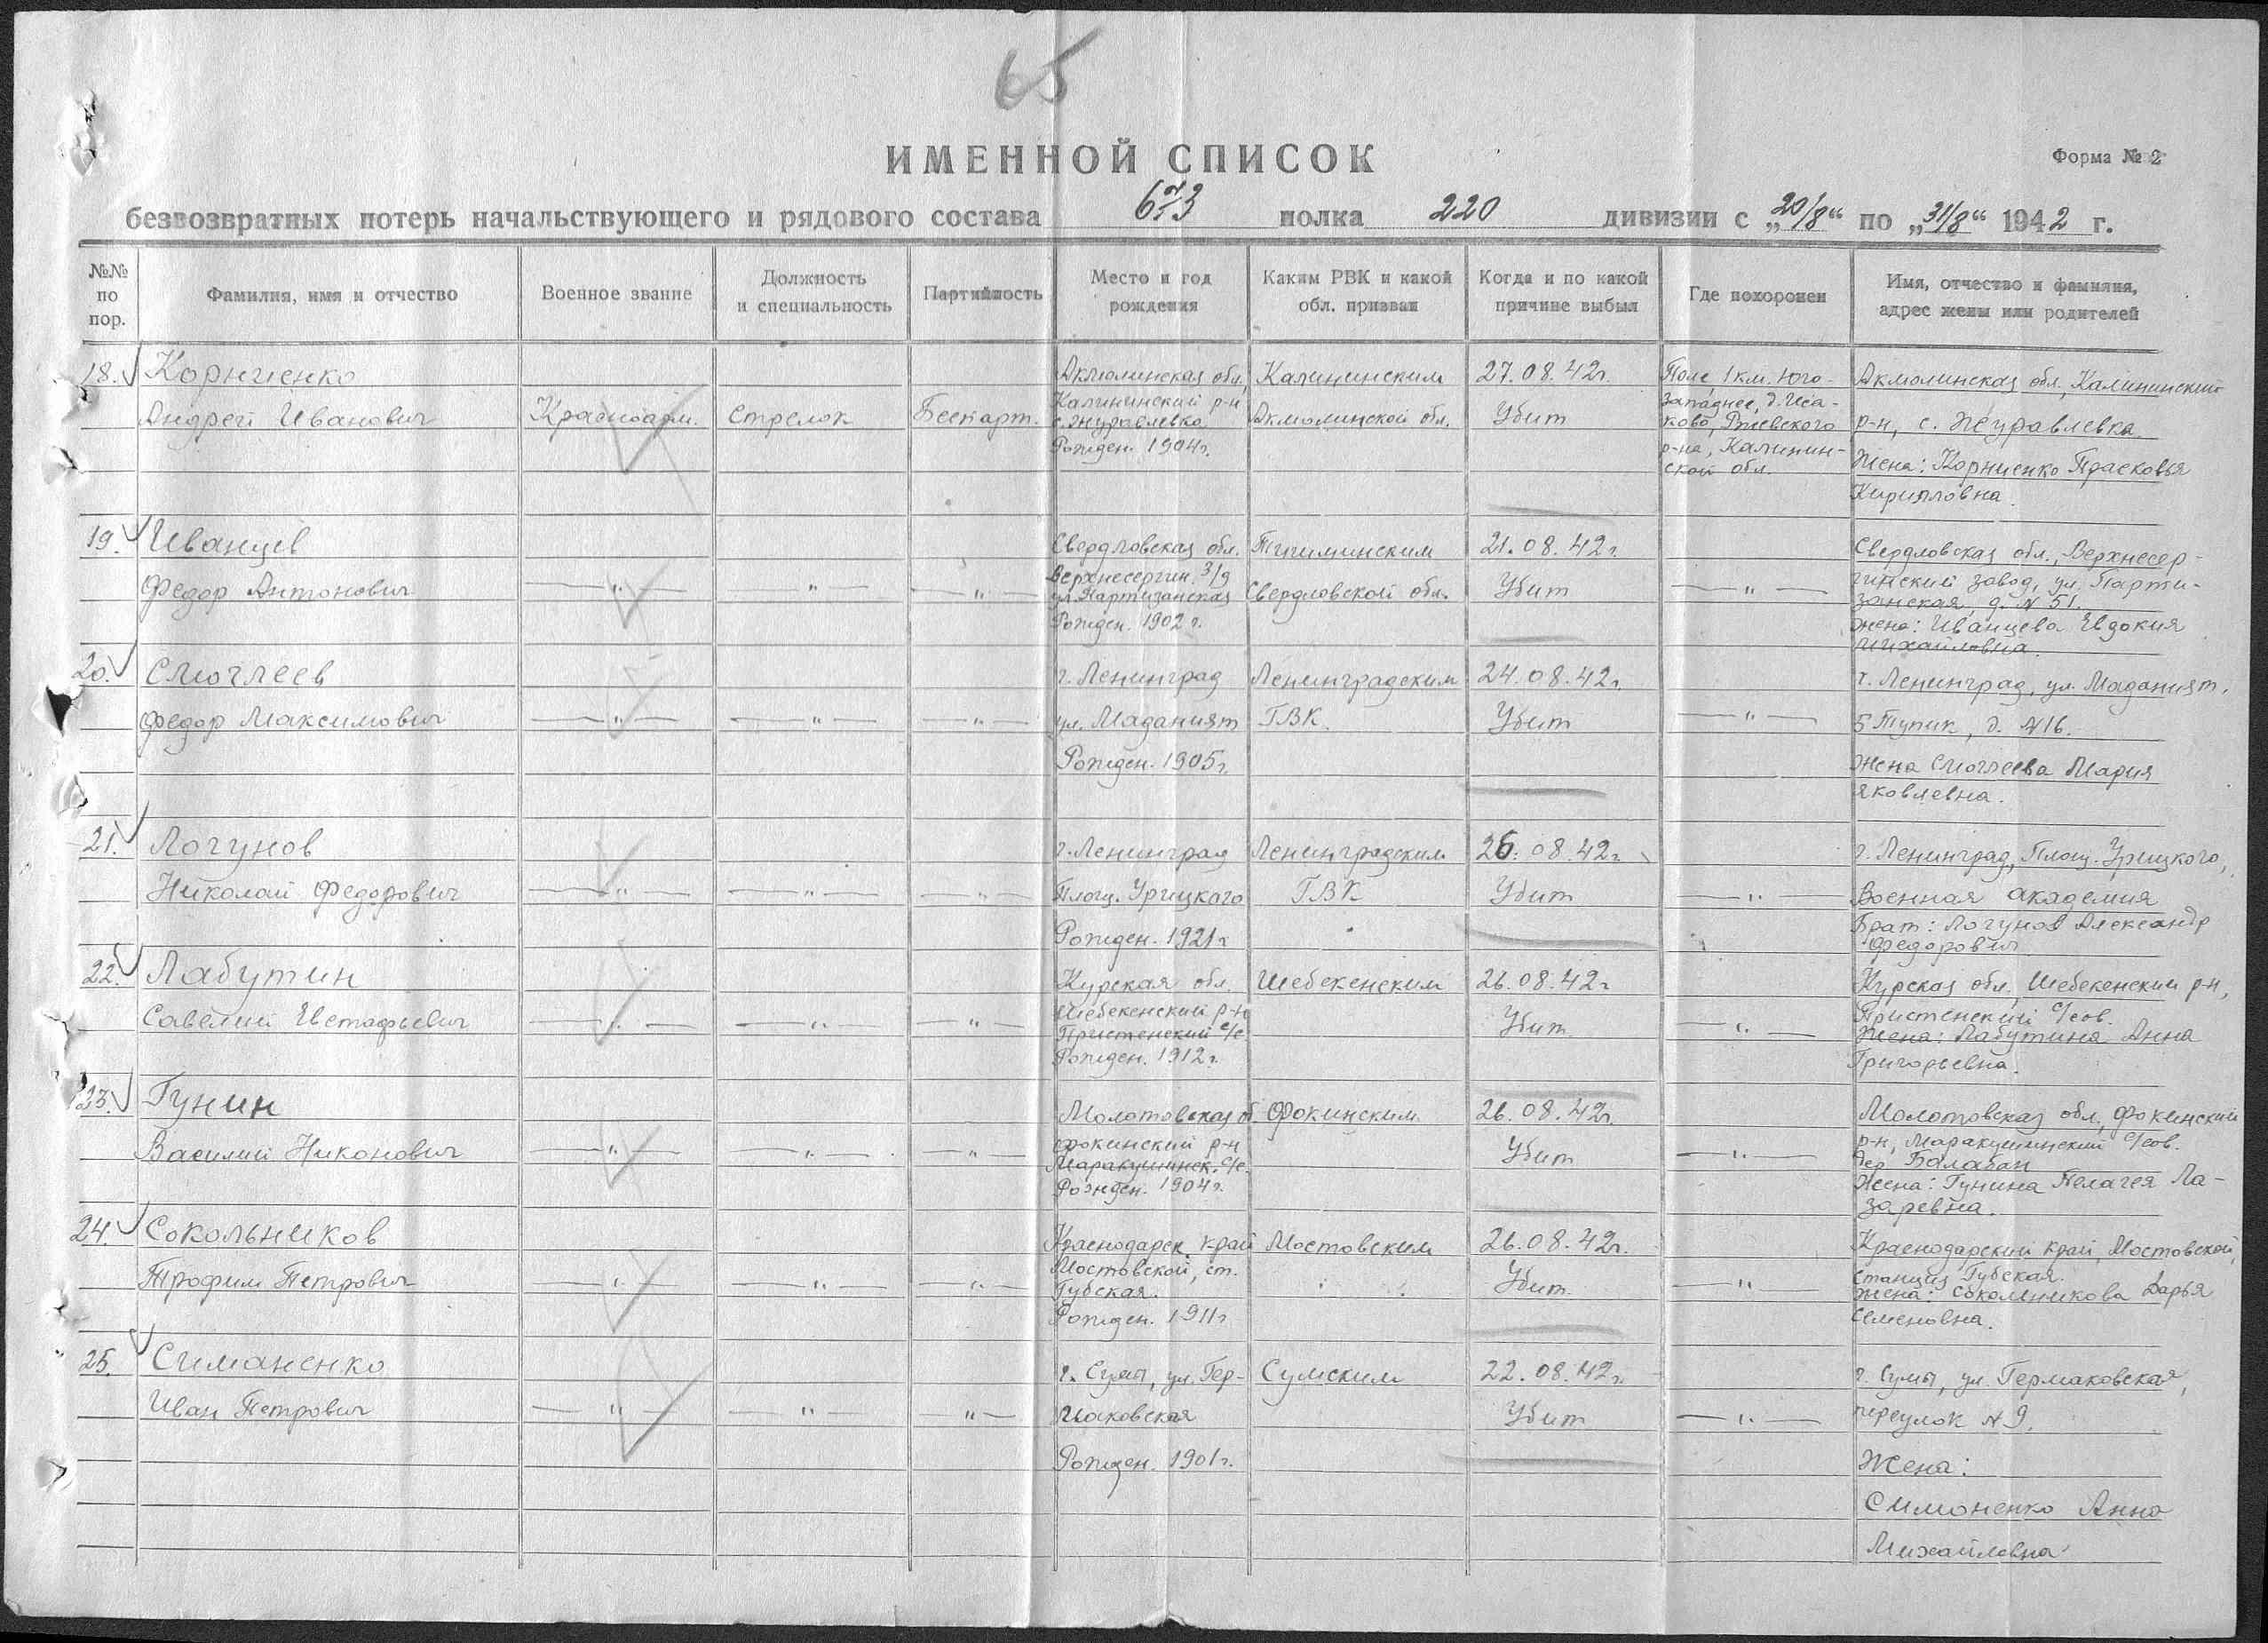 65
ИМЕННОЙ СПИСОК
Форма № 2
безвозвратных потерь начальствующего и рядового состава 673 полка 220 дивизии с „20/8“ по „31/8“ 1942 г.
№№ по пор.
Фамилия, имя и отчество
Военное звание
Должность и специальность
Партийность
Место и год рождения
Каким РВК и какой обл. призван
Когда и по какой причине выбыл
Где похоронен
Имя, отчество и фамилия, адрес жены или родителей
18. Корниенко
Андрей Иванович
Красноарм.
Стрелок
Беспарт.
Акмолинская обл.
Калининский р-н
с. Журавлевка
Рожден. 1904г.
Калининским
Акмолинской обл.
27.08.42г.
Убит
Поле, 1 км. Юго-
западнее, д. Иса-
ково, Ржевского
р-на, Калинин-
ской обл.
Акмолинская обл., Калининский
р-н, с. Журавлевка
Жена: Корниенко Прасковья
Кирилловна.
19. Иванцев
Федор Антонович
— " —
— " —
— " —
Свердловская обл.
Верхнесергин. з/д
ул. Партизанская
Рожден. 1902 г.
Свердловской обл.
21.08.42г.
Убит
— " —
Свердловская обл., Верхнесер-
гинский завод, ул. Парти-
занская, д. № 51.
жена: Иванцева Евдокия
Михайловна.
20. Смоглеев
Федор Максимович
— " —
— " —
— " —
г. Ленинград
ул. Маданият
Рожден. 1905г.
Ленинградским
ГВК.
24.08.42г.
Убит
— " —
г. Ленинград, ул. Маданият,
5 Тупик, д. №16.
Жена Смоглеева Мария
Яковлевна.
21. Логунов
Николай Федорович
— " —
— " —
— " —
г. Ленинград
Площ. Урицкого
Рожден. 1921г
Ленинградским
ГВК
26.08.42г.
Убит
— " —
г. Ленинград, Площ. Урицкого,
Военная академия
Брат: Логунов Александр
Федорович
22. Лабутин
Савелий Евстафьевич
— " —
— " —
— " —
Курская обл.
Шебекенский р-н
Пристенский с/с
Рожден. 1912г.
Шебекенским
26.08.42г
Убит
— " —
Курская обл., Шебекенский р-н,
Пристенский с/сов.
Жена: Лабутина Анна
Григорьевна.
23. Гунин
Василий Никонович
— " —
— " —
— " —
Молотовская об.
Фокинский р-н
Маракушинск. с/с.
Рожден. 1904г.
Фокинским
26.08.42г.
Убит
— " —
Молотовская обл., Фокинский
р-н, Маракушинский с/сов.
дер. Балабан
Жена: Гунина Пелагея Ла-
заревна.
24. Сокольников
Трофим Петрович
— " —
— " —
— " —
Краснодарск. край
Мостовской, ст.
Губская.
Рожден. 1911г
Мостовским
26.08.42г.
Убит.
— " —
Краснодарский край, Мостовской,
Станция Губская.
жена: Сокольникова Дарья
Семеновна.
25. Симаненко
Иван Петрович
— " —
— " —
— " —
г. Сумы, ул. Гер-
маковская
Рожден. 1901г.
Сумским
22.08.42г.
Убит
— " —
г. Сумы, ул. Гермаковская,
переулок № 9.
Жена:
Симоненко Анна
Михайловна